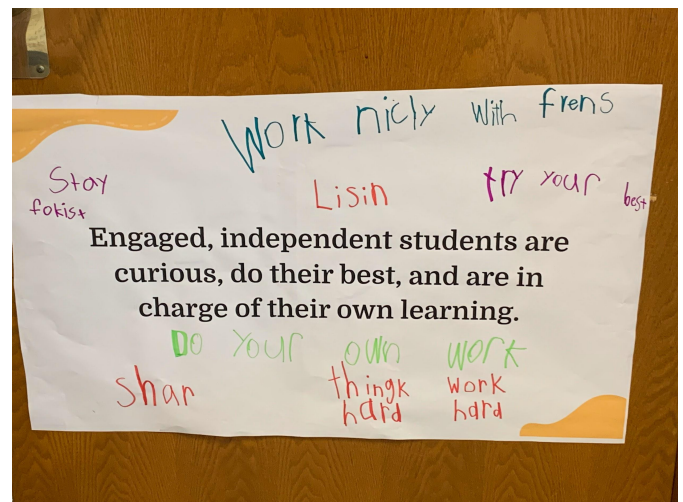 Work nicly with frens
Stay
fokist
Lisin
try your best
Engaged, independent students are
curious, do their best, and are in
charge of their own learning.
Do your own work
shar
thingk
hard
work
hard